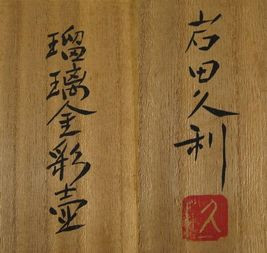 岩田久利
久
瑠璃金彩壺